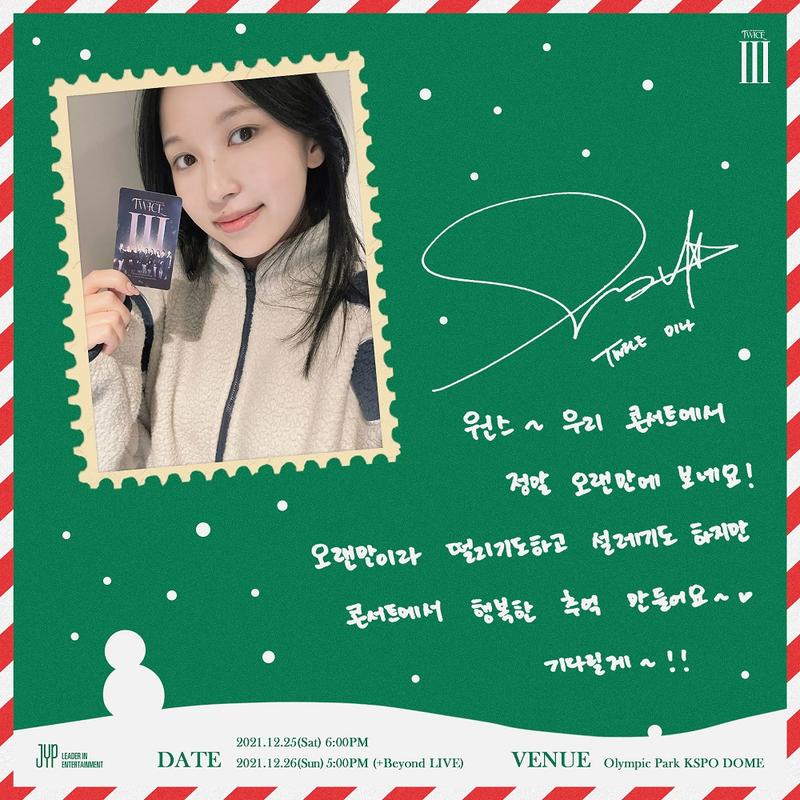 TWICE
III
TWICE
III
TWICE 미나
원스~ 우리 콘서트에서
정말 오랜만에 보네요!
오랜만이라 떨리기도하고 설레기도 하지만
콘서트에서 행복한 추억 만들어요~♥
기다릴게~!!
JYP LEADER IN ENTERTAINMENT
DATE
2021.12.25(Sat) 6:00PM
2021.12.26(Sun) 5:00PM (+Beyond LIVE)
VENUE Olympic Park KSPO DOME